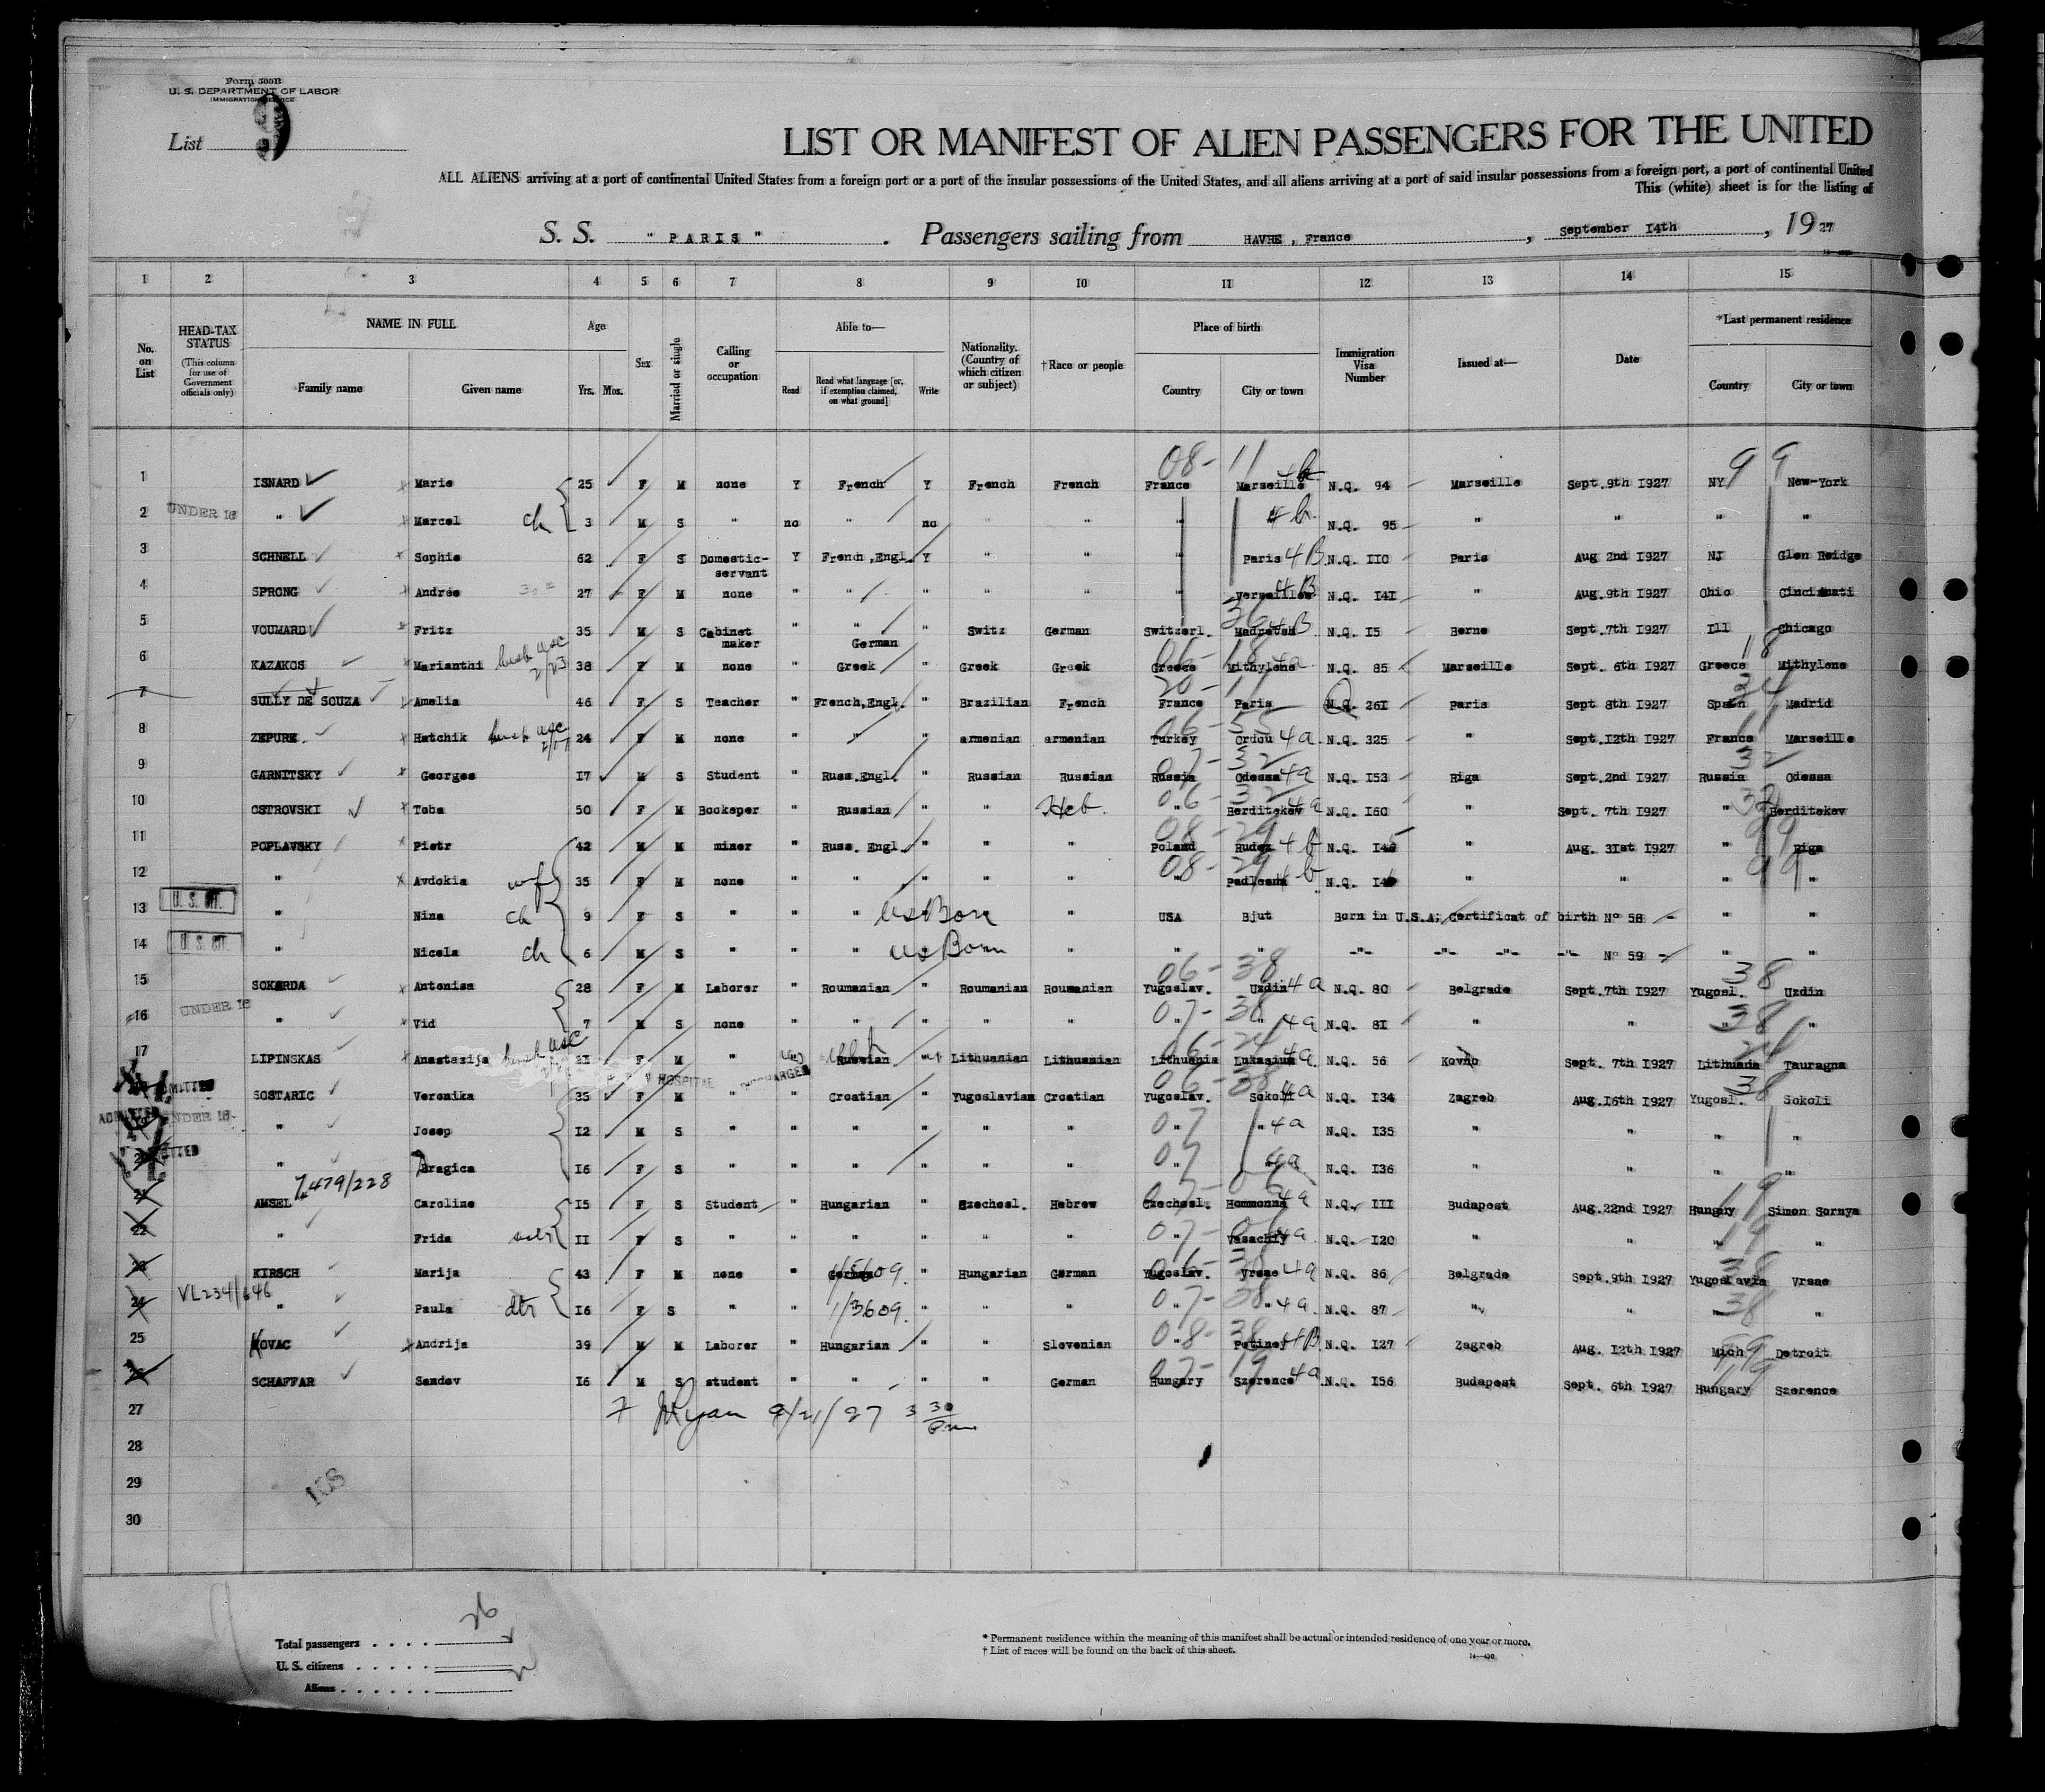 Form 500B
U. S. DEPARTMENT OF LABOR
IMMIGRATION SERVICE
List 9
LIST OR MANIFEST OF ALIEN PASSENGERS FOR THE UNITED
ALL ALIENS arriving at a port of continental United States from a foreign port or a port of the insular possessions of the United States, and all aliens arriving at a port of said insular possessions from a foreign port, a port of continental United
This (white) sheet is for the listing of
S. S. " PARIS " . Passengers sailing from HAVRE, France , September 14th , 1927
1 2 3 4 5 6 7 8 9 10 11 12 13 14 15
No. on List
HEAD-TAX STATUS (This column for use of Government officials only)
NAME IN FULL Family name Given name
Age Yrs. Mos.
Sex
Married or single
Calling or occupation
Able to— Read Read what language [or, if exemption claimed, on what ground] Write
Nationality. (Country of which citizen or subject)
†Race or people
Place of birth Country City or town
Immigration Visa Number
Issued at—
Date
*Last permanent residence Country City or town
08- 11 9 9
1 ISNARD Marie 25 F M none Y French Y French French France Marseille 4b N.Q. 94 Marseille Sept.9th 1927 NY New-York
2 UNDER 16 " Marcel ch 3 M S " no " no " " " " 4b N.Q. 95 " " " "
3 SCHNELL Sophie 62 F S Domestic-servant Y French,Engl. Y " " " Paris 4B N.Q. 110 Paris Aug 2nd 1927 NJ Glen Reidge
4 SPRONG Andrée 27 F M none " " " " " " Versailles 4B N.Q. 141 " Aug.9th 1927 Ohio Cincinnati
5 VOUMARD Fritz 35 M S Cabinet maker " " German " Switz German Switzerl. 4B N.Q. 15 Berne Sept.7th 1927 Ill Chicago
6 KAZAKOS Marianthi husb USC 38 F M none " Greek " Greek Greek Greece Mithylene 4a N.Q. 85 Marseille Sept. 6th 1927 Greece Mithylene
7 SULLY DE SOUZA Amelia 46 F S Teacher " French,Engl. " Brazilian French France Paris N.Q. 261 Paris Sept 8th 1927 Spain Madrid
8 ZEPURE Hatchik husb USC 24 F M none " " " armenian armenian Turkey Ordou 4a N.Q. 325 " Sept.12th 1927 France Marseille
9 GARNITSKY Georges 17 M S Student " Russ.Engl. " Russian Russian Russia Odessa 4a N.Q. 153 Riga Sept.2nd 1927 Russia Odessa
10 OSTROVSKI Toba 50 F M Bookeper " Russian " " Heb. " Berditekev 4a N.Q. 160 " Sept. 7th 1927 " Berditekev
11 POPLAVSKY Piotr 42 M M miner " Russ. Engl. " " " Poland 4b N.Q. " Aug. 31st 1927 " Riga
12 " Avdokia wf 35 F M none " " " " " " 4b N.Q. " " " "
13 U. S. CIT. " Nina ch 9 F S " " " US Born " USA Bjut Born in U.S.A; Certificat of birth N° 58 " "
14 U. S. CIT. " Nicola ch 6 M S " " " US Born " " " -"- -"- -"- -"- -"- N° 59 " "
15 SOKARDA Antonisa 28 F M Laborer " Roumanian " Roumanian Roumanian Yugoslav. Uzdin 4a N.Q. 80 Belgrade Sept.7th 1927 Yugosl. Uzdin
16 UNDER 16 " Vid 7 M S none " " " " " " " 4a N.Q. 81 " " " "
17 LIPINSKAS Anastazija husb USC 21 F M " " Russian " Lithuanian Lithuanian Lithuania 4a N.Q. 56 Kovno Sept. 7th 1927 Lithuania Tauragna
HOSPITAL DISCHARGED
ADMITTED SOSTARIC Veronika 35 F M " " Croatian " Yugoslavian Croatian Yugoslav. Sokoli 4a N.Q. 134 Zagreb Aug.16th 1927 Yugosl. Sokoli
ADMITTED UNDER 16 " Josep 12 M S " " " " " " " " 4a N.Q. 135 " " " "
ADMITTED " Dragica 16 F S " " " " " " " 4a N.Q. 136 " " " "
7479/228
21 AMSEL Caroline 15 F S Student " Hungarian " Szechosl. Hebrew Czechosl. Hommonna 4a N.Q. 111 Budapest Aug.22nd 1927 Hungary Simon Sornya
22 " Frida sister 11 F S " " " " " " " 4a N.Q. 120 " " " "
23 KIRSCH Marija 43 F M none " German " Hungarian German Yugoslav. Vrsac 4a N.Q. 86 Belgrade Sept.9th 1927 Yugoslavia Vrsac
24 VL234/646 " Paula dtr 16 F S " " 1/3609. " " " " " 4a N.Q. 87 " " " "
25 KOVAC Andrija 39 M M Laborer " Hungarian " " Slovenian " 4B N.Q. 127 Zagreb Aug. 12th 1927 Mich Detroit
26 SCHAFFAR Sandov 16 M S student " " " " German Hungary Szerence 4a N.Q. 156 Budapest Sept. 6th 1927 Hungary Szerence
27 Ryan 9/21/27 3 30 Pm
28
29
30
Total passengers . . . . 26
U. S. citizens . . . . . 2
Aliens . . . . . .
* Permanent residence within the meaning of this manifest shall be actual or intended residence of one year or more.
† List of races will be found on the back of this sheet.
14—430